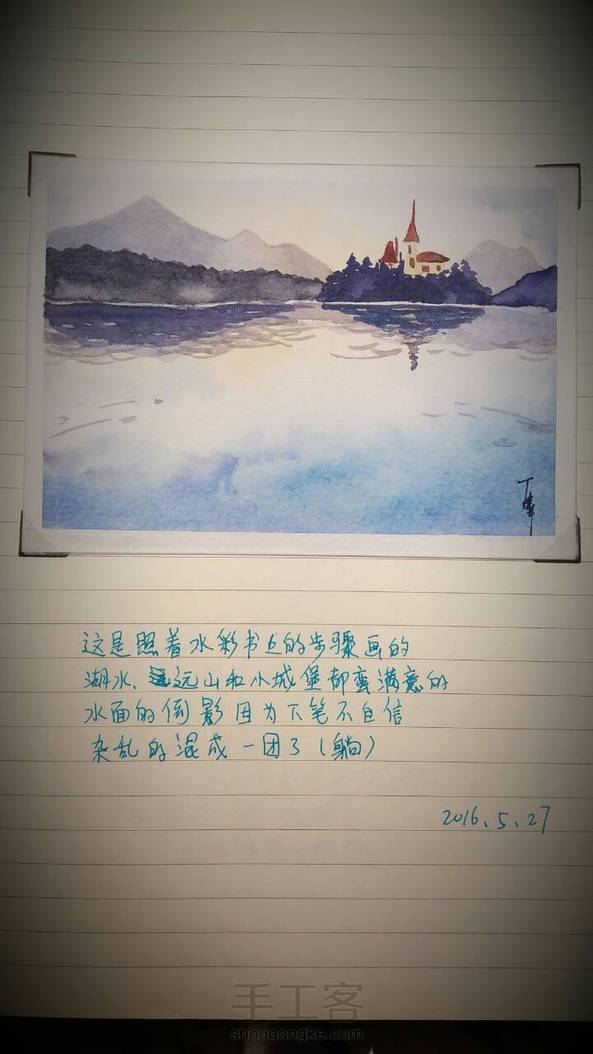 这是照着水彩书上的步骤画的
湖水、远山和小城堡都蛮满意的
水面的倒影因为下笔不自信
杂乱的混成一团了（躺）
2016.5.27
手工客
shougongke.com